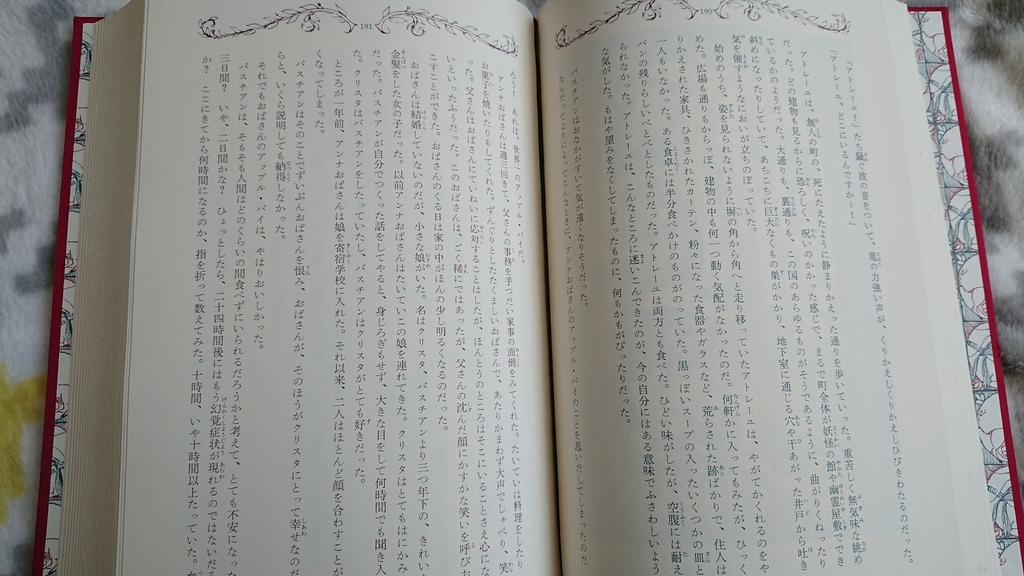 190
「アトレーユ!」たち騒ぐ波の音をついて、竜の力強い声が、くりかえしくりかえしひびきわたるのだった。
「アトレーユ、どこにいるんですか――!」
アトレーユは、無人の町の、死にたえたように静まりかえった通りを歩いていった。重苦しく無気味な眺め
だった。どの建物も見るからに恐ろしく、呪いのかかった感じで、まるで町全体が妖怪の館や幽霊屋敷ででき
ているかのようだった。大通りも、裏通りも、この国のあらゆるものがそうであるように、曲がりくねったり
斜めになったりしていて、あちこちに巨大なくもの巣がかかり、地下室に通じる穴や干あがった井戸から吐き
気を催すようなにおいが立ちのぼっていた。
始めのうち、姿を見られないように塀の角から角へと走り移っていたアトレーユは、やがてかくれるのをや
めた。広場も通りもからっぽ、建物の中も何一つ動く気配がなかったのだ。何軒かに入ってもみたが、ひっく
りかえされた家具、ひきさかれたカーテン、粉々になった食器やガラスなど、荒らされた跡ばかりで、住人は
一人もいなかった。ある食卓には半分食べかけのものがのっていた。黒っぽいスープの入ったいくつかの皿と
パンの残りらしいべとべとしたものだった。アトレーユは両方とも食べた。ひどい味がしたが、空腹には耐え
られなかった。アトレーユは、こんなところに迷いこんできたのが、今の自分にはある意味でふさわしいよう
な気がした。もはや望みをなくしてしまったものに、何もかもがぴったりだった。
バスチアンはおなかがすいて気が遠くなりそうだった。
アンナおばさんのアップル・パイのことを思いだしてしまったのだ
191
ろう! あれは、世界一のアップル・パイだ。
アンナおばさんは週三回きて、父さんの事務を手つだい家事の面倒をみてくれた。たいていは料理をしたり
お菓子を焼いたりもしてくれた。ずんぐりとしたたくましいおばさんで、あたりかまわず大声でしゃべり、笑
った。父さんはおばさんにていねいに応対することはしたが、ほんとうのところはそこにいることさえ心にな
いといったふうだった。このおばさんは、ごく稀にではあったが、父さんの沈んだ顔にかすかな笑いを呼びお
こすことができた。おばさんのくる日は家の中がほんの少し明るくなるのだった。
おばさんは結婚していないのだが、小さな娘がいた。名はクリスタ、バスチアンより三つ年下の、きれいな
金髪をした女の子だった。以前アンナおばさんはたいていこの娘を連れてきた。クリスタはとてもはにかみ
だった。バスチアンが自分でつくった話をしてやると、身じろぎもせず、大きな目をして何時間でも聞き入
た。クリスタはバスチアンを慕っていたし、バスチアンはクリスタがとても好きだった。
ところが一年前、アンナおばさんは娘を寄宿学校に入れた。それ以来、二人はほとんど顔を合わすことが
くなってしまった。
バスチアンはそのことでずいぶんおばさんを恨み、おばさんが、そのほうがクリスタにとって幸せなのだ
らと、いくら説明しても納得しなかった。
それでもおばさんのアップル・パイは、やはりおいしかった。
バスチアンは、そもそも人間はどのくらいの間食べずにいられるだろうかと考えて、とても不安になった
三日間? いや、二日間かな? ひょっとしたら、二十四時間後にはもう幻覚症状が現れるのではないだろ
か? ここにきてから何時間になるのか、指を折って数えてみた。十時間、いや十時間以上たっていた。